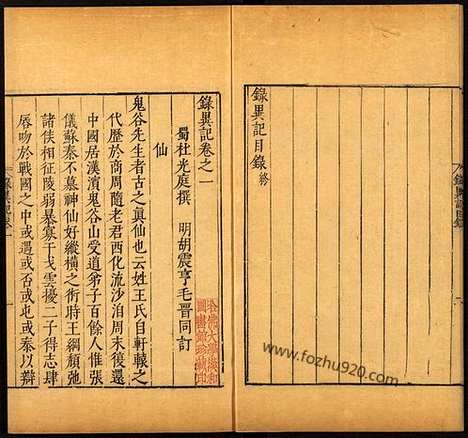 錄異記目錄終
錄異記卷之一
蜀杜光庭撰　明胡震亨毛晉同訂
仙
鬼谷先生者古之真仙也云姓王氏自軒轅之
代歷於商周隨老君西化流沙洎周末復還
中國居漢濱鬼谷山受道弟子百餘人惟張
儀蘇秦不慕神仙好縱橫之術時王綱頹弛
諸侯相征陵弱暴寡干戈雲擾二子得志肆
唇吻於戰國之中或遇或否或屯或泰以辯
www.fozhu920.com